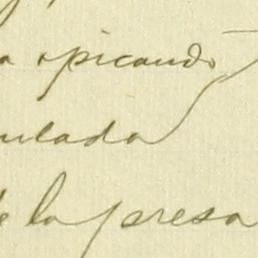 a opicando
ulada
de la presa